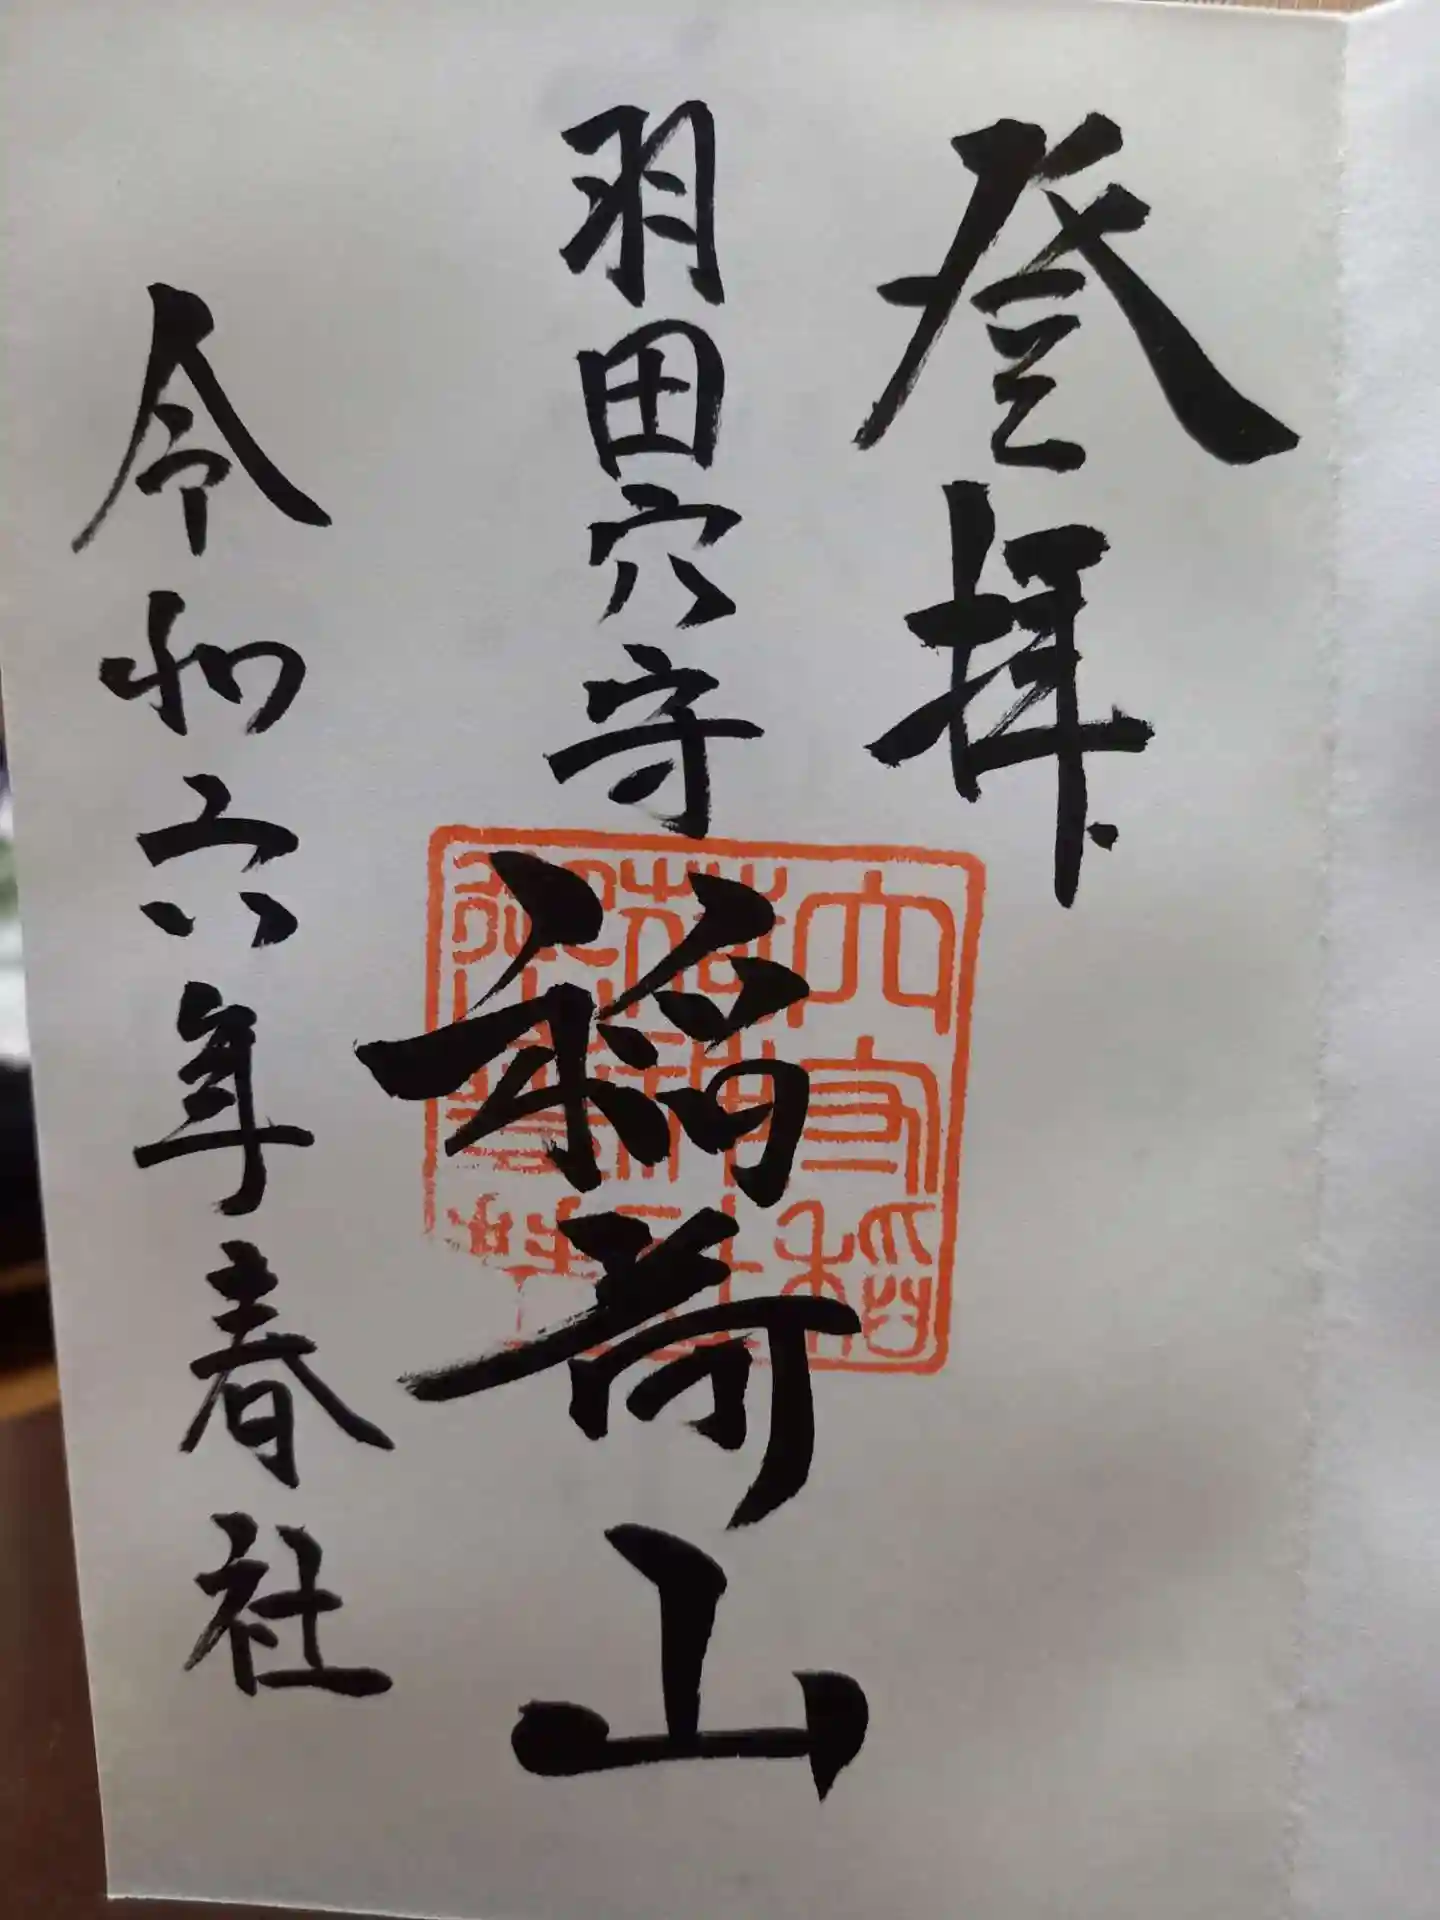 登拝
羽田穴守
稲荷山
令和六年春社
穴守稲
荷神社